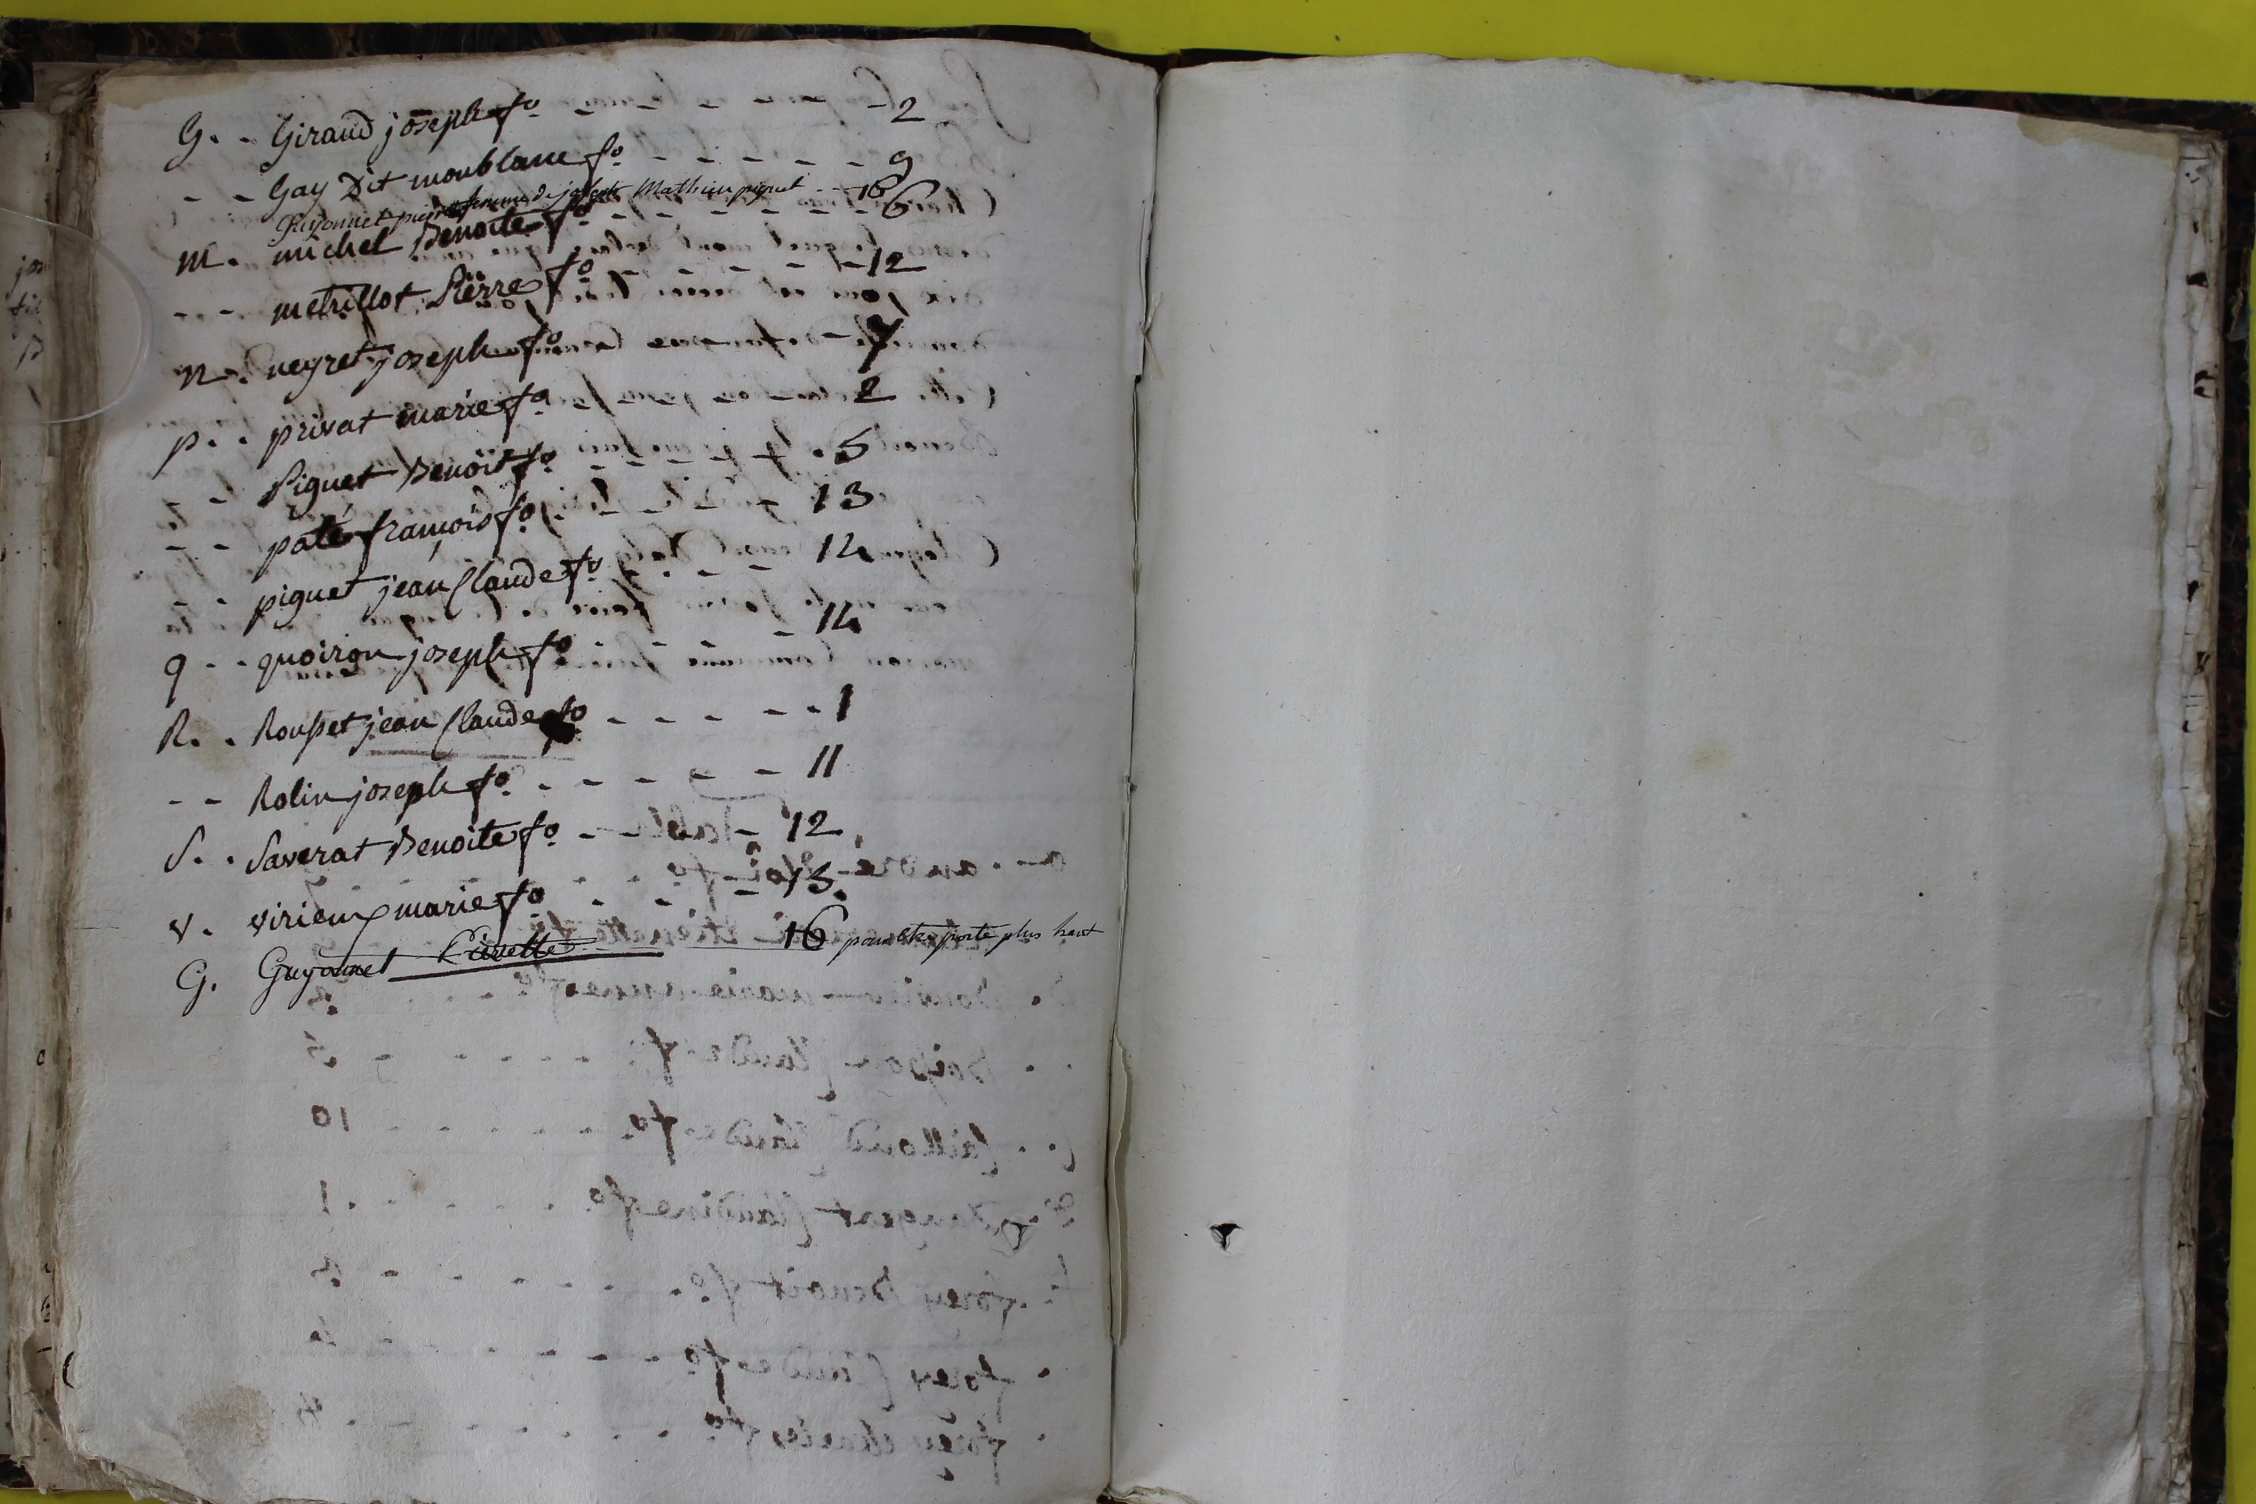 G. - Giraud joseph fo - - - - - 2
- - Gay Dit monblanc fo - - - - - 9
Guyonnet pierre femme de joseph Mathieu piguet - - 16
M. michel Benoite fo - - - - - 6
- - metrillot Pierre fo - - - - - 12
N. neyret joseph fo - 7
p. . privat marie fo 2
- - Piguet Benoit fo - - - - 5
- - paté françois fo - - - 13
- - piguet jean Claude fo - - - 14
q - - quoiron joseph fo - - - - 14
R. . Rousset jean Claude fo - - - - - 1
- - Rolin joseph fo - - - - - 11
S. . Saverat Benoite fo - - - - 12
V. virieux marie fo - - - - 13.
G. Guyonnet 16 pour etre porté plus haut